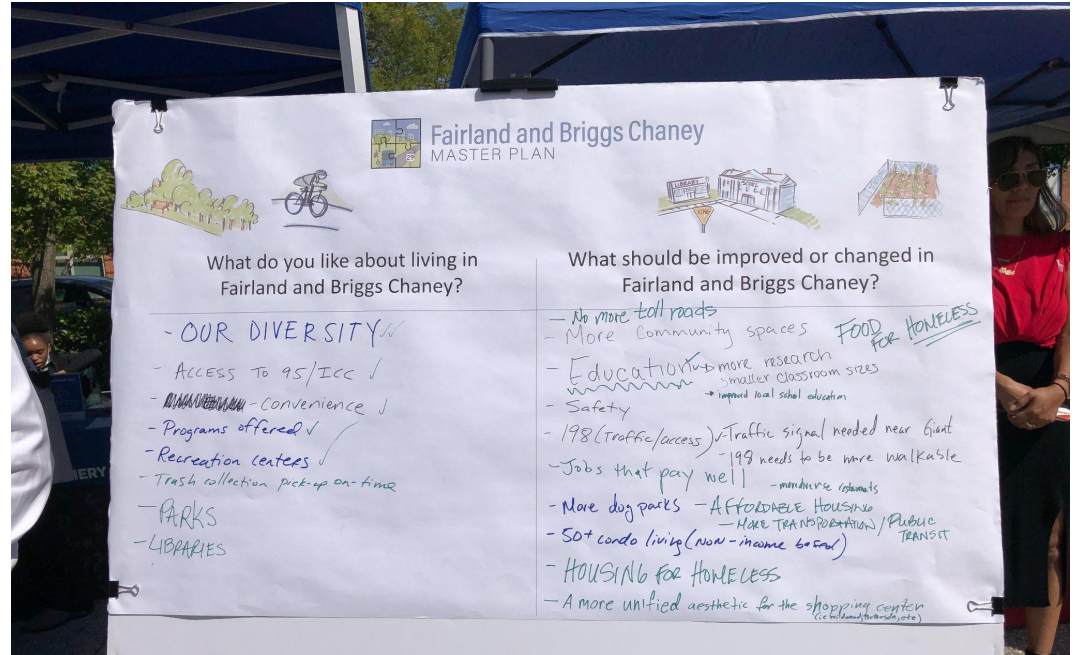 Fairland and Briggs Chaney
MASTER PLAN
29
LIBRARY
SCHOOL
XING
What do you like about living in
Fairland and Briggs Chaney?
- OUR DIVERSITY ✓✓
- ACCESS TO 95/ICC ✓
- Convenience ✓
- Programs offered ✓
- Recreation centers ✓
- Trash collection pick-up on-time
- PARKS
- LIBRARIES
What should be improved or changed in
Fairland and Briggs Chaney?
- No more toll roads
- More Community spaces
FOOD
FOR HOMELESS
- Education ✓ → more research
smaller classroom sizes
→ improved local school education
- Safety
- 198 (Traffic/access) ✓ - Traffic signal needed near Giant
- 198 needs to be more walkable
- Jobs that pay well
- more diverse restaurants
- More dog parks - AFFORDABLE HOUSING
- MORE TRANSPORTATION / PUBLIC
TRANSIT
- 50+ condo living (non-income based)
- HOUSING FOR HOMELESS
- A more unified aesthetic for the shopping center
ERY